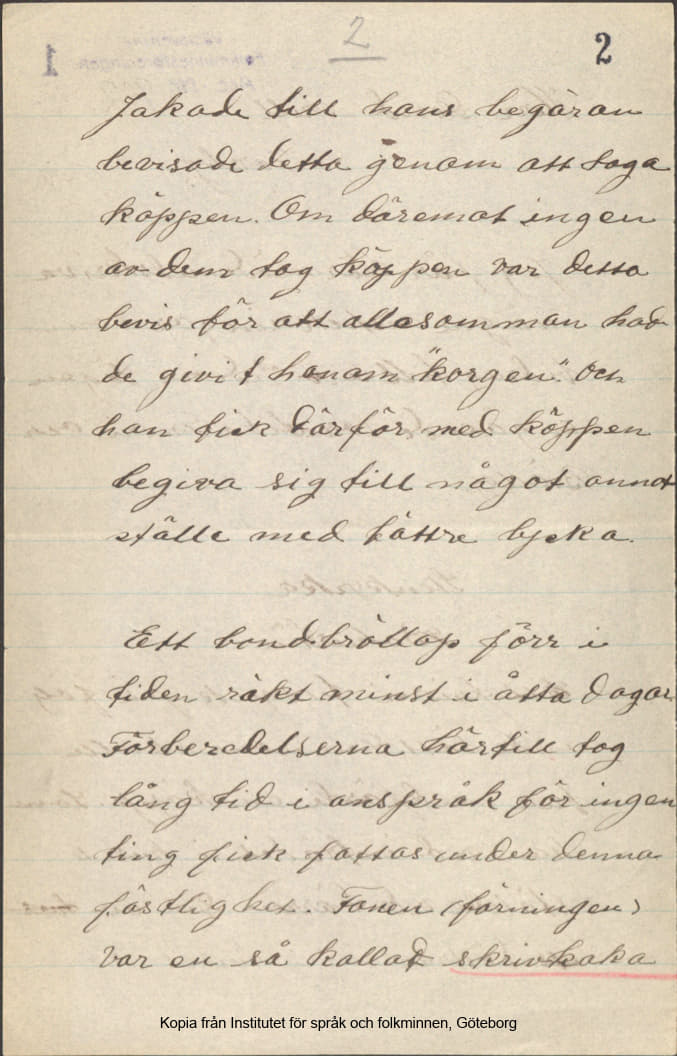 2
2
Jakade till hans begäran
bevisade detta genom att taga
käppen. Om däremot ingen
av dem tog käppen var detta
bevis för att allesamman had-
de givit honom "korgen". och
han fick därför med käppen
begiva sig till något annat
ställe med bättre lycka.
Ett bondbröllop förr i
tiden räkt minst i åtta dagar
Förberedelserna härtill tog
lång tid i anspråk för ingen
ting fick fattas under denna
fästlighet. Fonen (förningen)
var en så kallad skrivkaka
Kopia från Institutet för språk och folkminnen, Göteborg